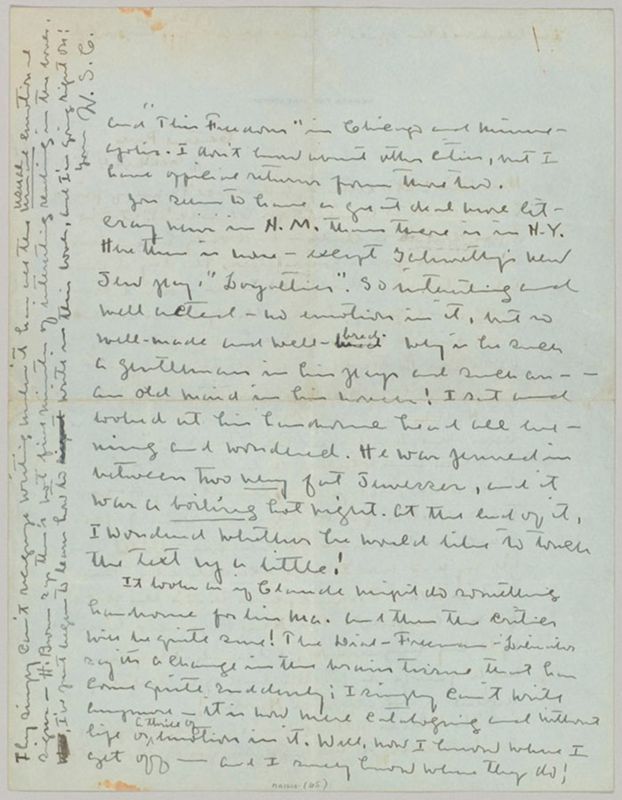 and "This Freedom" in Chicago and Minne-
apolis. I don't know about other cities, but I
have official returns from those two.
You seem to have a great deal more lit-
erary news in N.M. than there is in N.Y.
Here there is none - except Galsworthy's new
Jew play, "Loyalties". So interesting and
well acted - no emotion in it, but so
well-made and well-bred. Why is he such
a gentleman in his plays and such an - -
an old maid in his novels! I sat and
looked at his handsome head all eve-
ning and wondered. He was jammed in
between two very fat Jewesses, and it
was a boiling hot night. At the end of it,
I wondered whether he would like to touch
the text up a little!
It looks as if Claude might do something
handsome for his Ma. And then the critics
will be quite sure! The Dial-Freeman-Liberator
say its a change in the brain tissue that has
come quite suddenly; I simply can't write
anymore - it is now mere cataloging and without
life or a thrill of emotion in it. Well, now I know where I
get off - and I surely know where they do!
They simply can't recognize writing unless it has all the usual emotional
signs - H. Broun says there's not five minutes of interesting reading in the book.
I've just begun to learn how to write in this book, and I'm going right on!
Yours W. S. C.